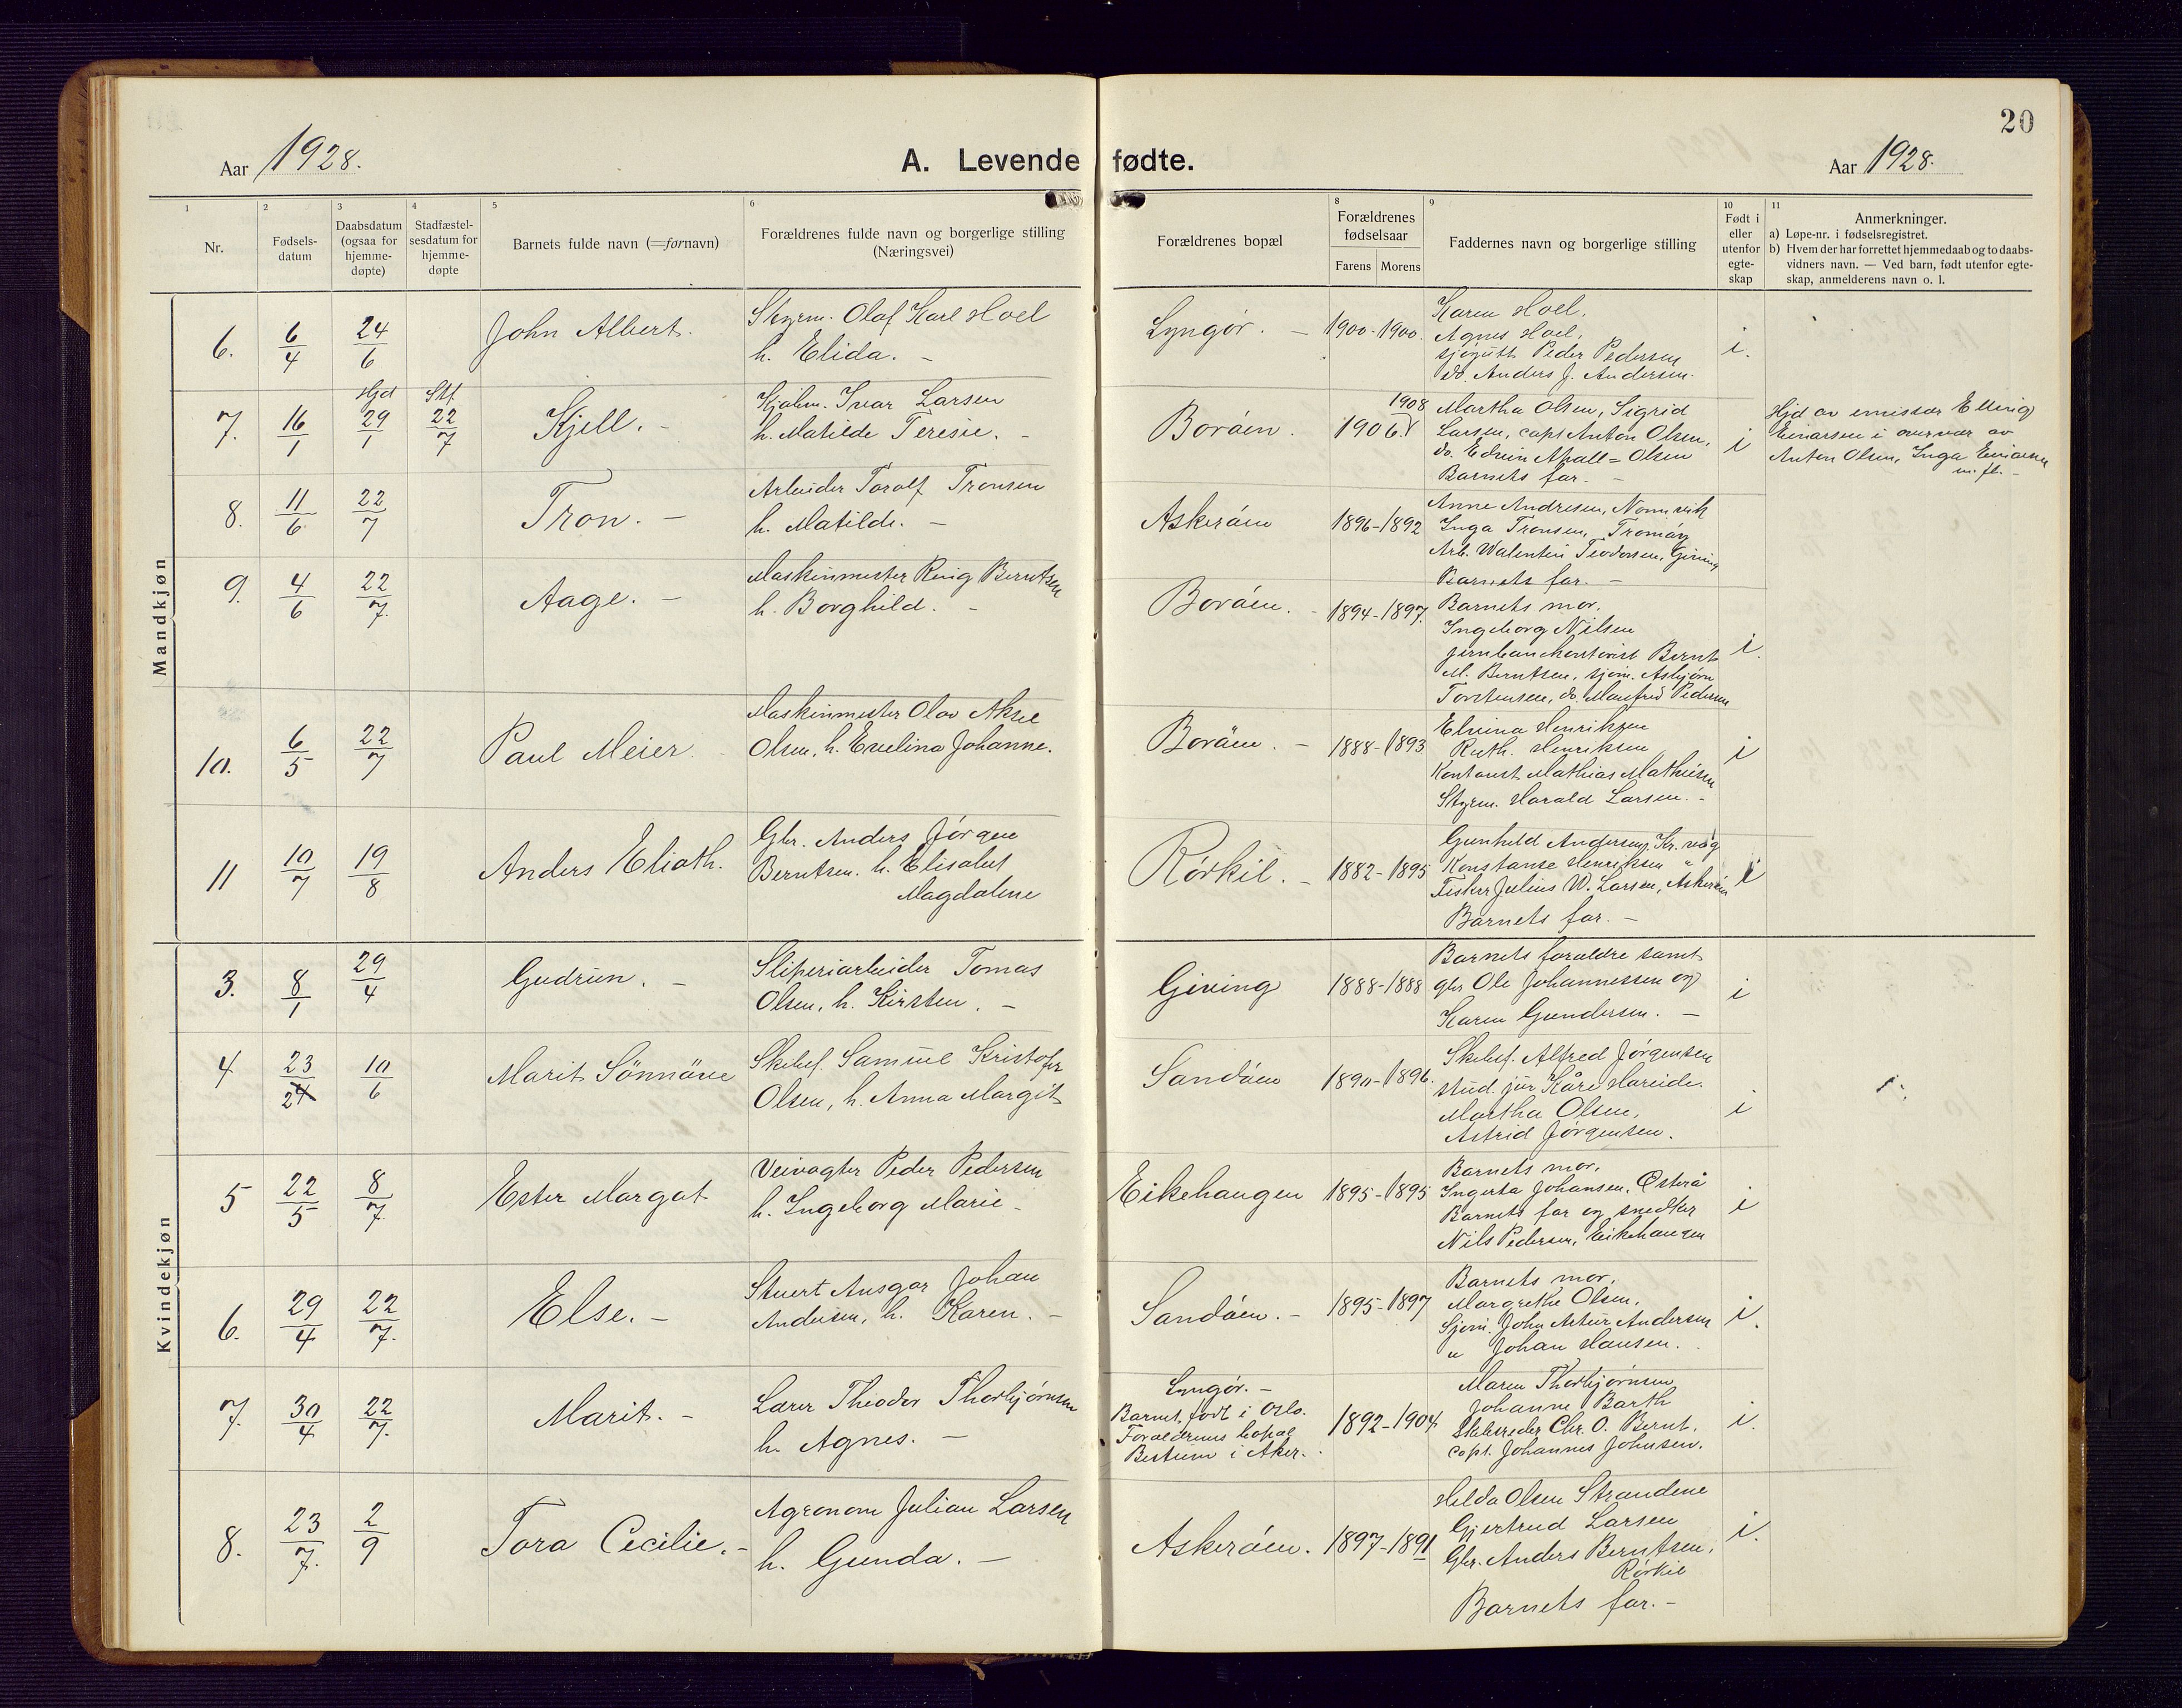 20
Aar 1928.
A. Levende fødte.
Aar 1928.
1
Nr.
2
Fødsels-
datum
3
Daabsdatum
(ogsaa for
hjemme-
døpte)
4
Stadfæstel-
sesdatum for
hjemme-
døpte
5
Barnets fulde navn (=fornavn)
6
Forældrenes fulde navn og borgerlige stilling
(Næringsvei)
Forældrenes bopæl
8
Forældrenes
fødselsaar
Farens Morens
9
Faddernes navn og borgerlige stilling
10
Født i
eller
utenfor
egte-
skap
11
Anmerkninger.
a) Løpe-nr. i fødselsregistret.
b) Hvem der har forrettet hjemmedaab og to daabs-
vidners navn. — Ved barn, født utenfor egte-
skap, anmelderens navn o. l.
Mandkjøn
6. 6/4 24/6 John Albert.
Styrm. Olaf Karl Hoel
h. Elida. -
Lyngör. - 1900-1900.
Karen Hoel.
Agnes Hoel,
sjögutt Peder Pedersen
do. Anders J. Andersen.
i.
7. 16/1 Hjd 29/1 Stf 22/7 Kjell. -
Ivar Larsen
h. Matilde Teresie. -
Boröen. 1906. 1908
Martha Olsen, Sigrid
Larsen, capt Anton Olsen,
do. Edvin Olsen
Barnets far. -
i
Hjd av emissær Elling
Einarsen i overvær av
Anton Olsen, Inga
m. fl. -
8. 11/6 22/7 Tron. -
Arbeider Torolf Tronsen
h. Matilde. -
Askeröen 1896-1892
Anne Andresen,
Inga Tronsen, Tromöy
Arb. Walentin Teodorsen, Giving
Barnets far. -
9. 4/6 22/7. Aage. -
Maskinmester Berntsen
h. Borghild. -
Boröen. - 1894-1897.
Barnets mor.
Ingeborg Nilsen
Bernt
M. Berntsen, sjöm. Asbjørn
Torstensen, do. Manfred Pedersen
i.
10. 6/5 22/7 Paul Meier.
Maskinmester Olav Aksel
Olsen, h. Evelina Johanne.
Boröen. - 1888-1893
Henriksen
Ruth. Henriksen
Kontorist Mathias Mathiesen
Styrm. Harald Larsen. -
i
11 10/7 19/8 Anders Eliath.
Gbr. Anders Jörgen
Berntsen. h. Elisabet
Magdalene
Rörkil. - 1882-1895
Gunhild Andersen, Kr. våg
Konstanse Henriksen "
Fisker Julius W. Larsen, Askeröen
Barnets far. -
i
Kvindekjøn
3. 8/1 29/4 Gudrun. -
Sliperiarbeider Tomas
Olsen, h. Kirsten. -
Giving 1888-1888
Barnets forældre samt
gbr Ole Johannessen og
Karen Gundersen. -
i
4 23/24 10/6 Marit Sönnöve
Skibsf. Samuel Kristofer
Olsen, h. Anna Margit
Sandöen 1890-1896.
Skibsf. Alfred Jörgensen
stud. jur Kåre Hareide.
Martha Olsen,
Astrid Jörgensen.
i
5 22/5 8/7. Ester Margot
Veivogter Peder Pedersen
h. Ingeborg Marie -
Eikehaugen 1895-1895
Barnets mor,
Ingerta Johansen, Österå
Barnets far og snedker
Nils Pedersen, Eikehaugen
i
6. 29/4 22/7. Else. -
Stuert Ansgar Johan
Andersen, h. Karen. -
Sandöen. - 1895-1897
Barnets mor,
Margrethe Olsen,
Sjöm. John Artur Andersen
" Johan Hansen.
i.
7. 30/4 22/7. Marit. -
Lærer Theodor Thorbjørnsen
h. Agnes. -
Lyngör. -
Barnet född i Oslo.
Forældrenes bopæl
Bestum i Aker.
1892-1904
Maren Thorbjørnsen
Johanne Barth
Skibsreder Chr. O. Bernt.
capt. Johannes Johnsen.
i.
8. 23/7. 2/9 Tora Cecilie. -
Agronom Julian Larsen
h. Gunda. -
Askeröen. 1897-1891
Hilda Olsen Strandene
Gjertrud Larsen
Gbr. Anders Berntsen,
Rörkil
Barnets far. -
i.